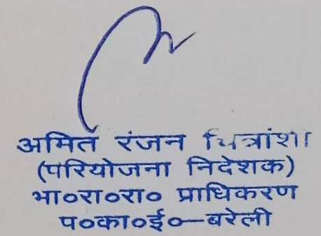 अमित रंजन चित्रांशा
(परियोजना निदेशक)
भा०रा०रा० प्राधिकरण
प०का०ई०—बरेली